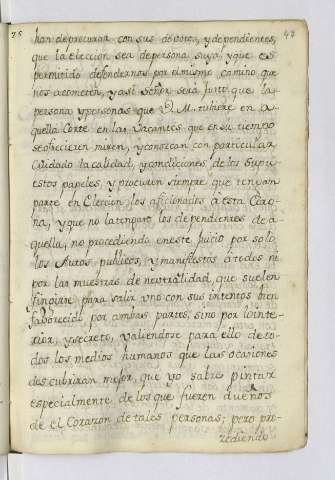 75 48
han de procurar con sus devotos, y dependientes,
que la eleccion sea de persona suya, y que es
permitido defendernos por el mismo camino que
nos acometen, y assi Señor será justo que la
persona y personas que V. M. tubiere en a-
quella Corte en las Vacantes que en su tiempo
se ofrecieren miren, y conoscan con particular
cuidado la calidad, y condiciones de los supu-
estos papeles, y procuren siempre que tengan
parte en Eleccion los aficionados à esta Coro-
na, y que no la tengan los dependientes de a-
quella, no procediendo en este Juicio por solo
los Autos publicos, y manifiestos à todos ni
por las muestras de neutralidad, que suelen
fingirse para salir uno con sus intentos bien
faborecido por ambas partes, sino por lo inte-
rior, y secreto, valiendose para ello de to-
dos los medios humanos que las ocasiones
descubriran mejor, que yo sabré pintar
especialmente de los que fueren dueños
de el Corazon de tales personas; pero pro-
zediendo